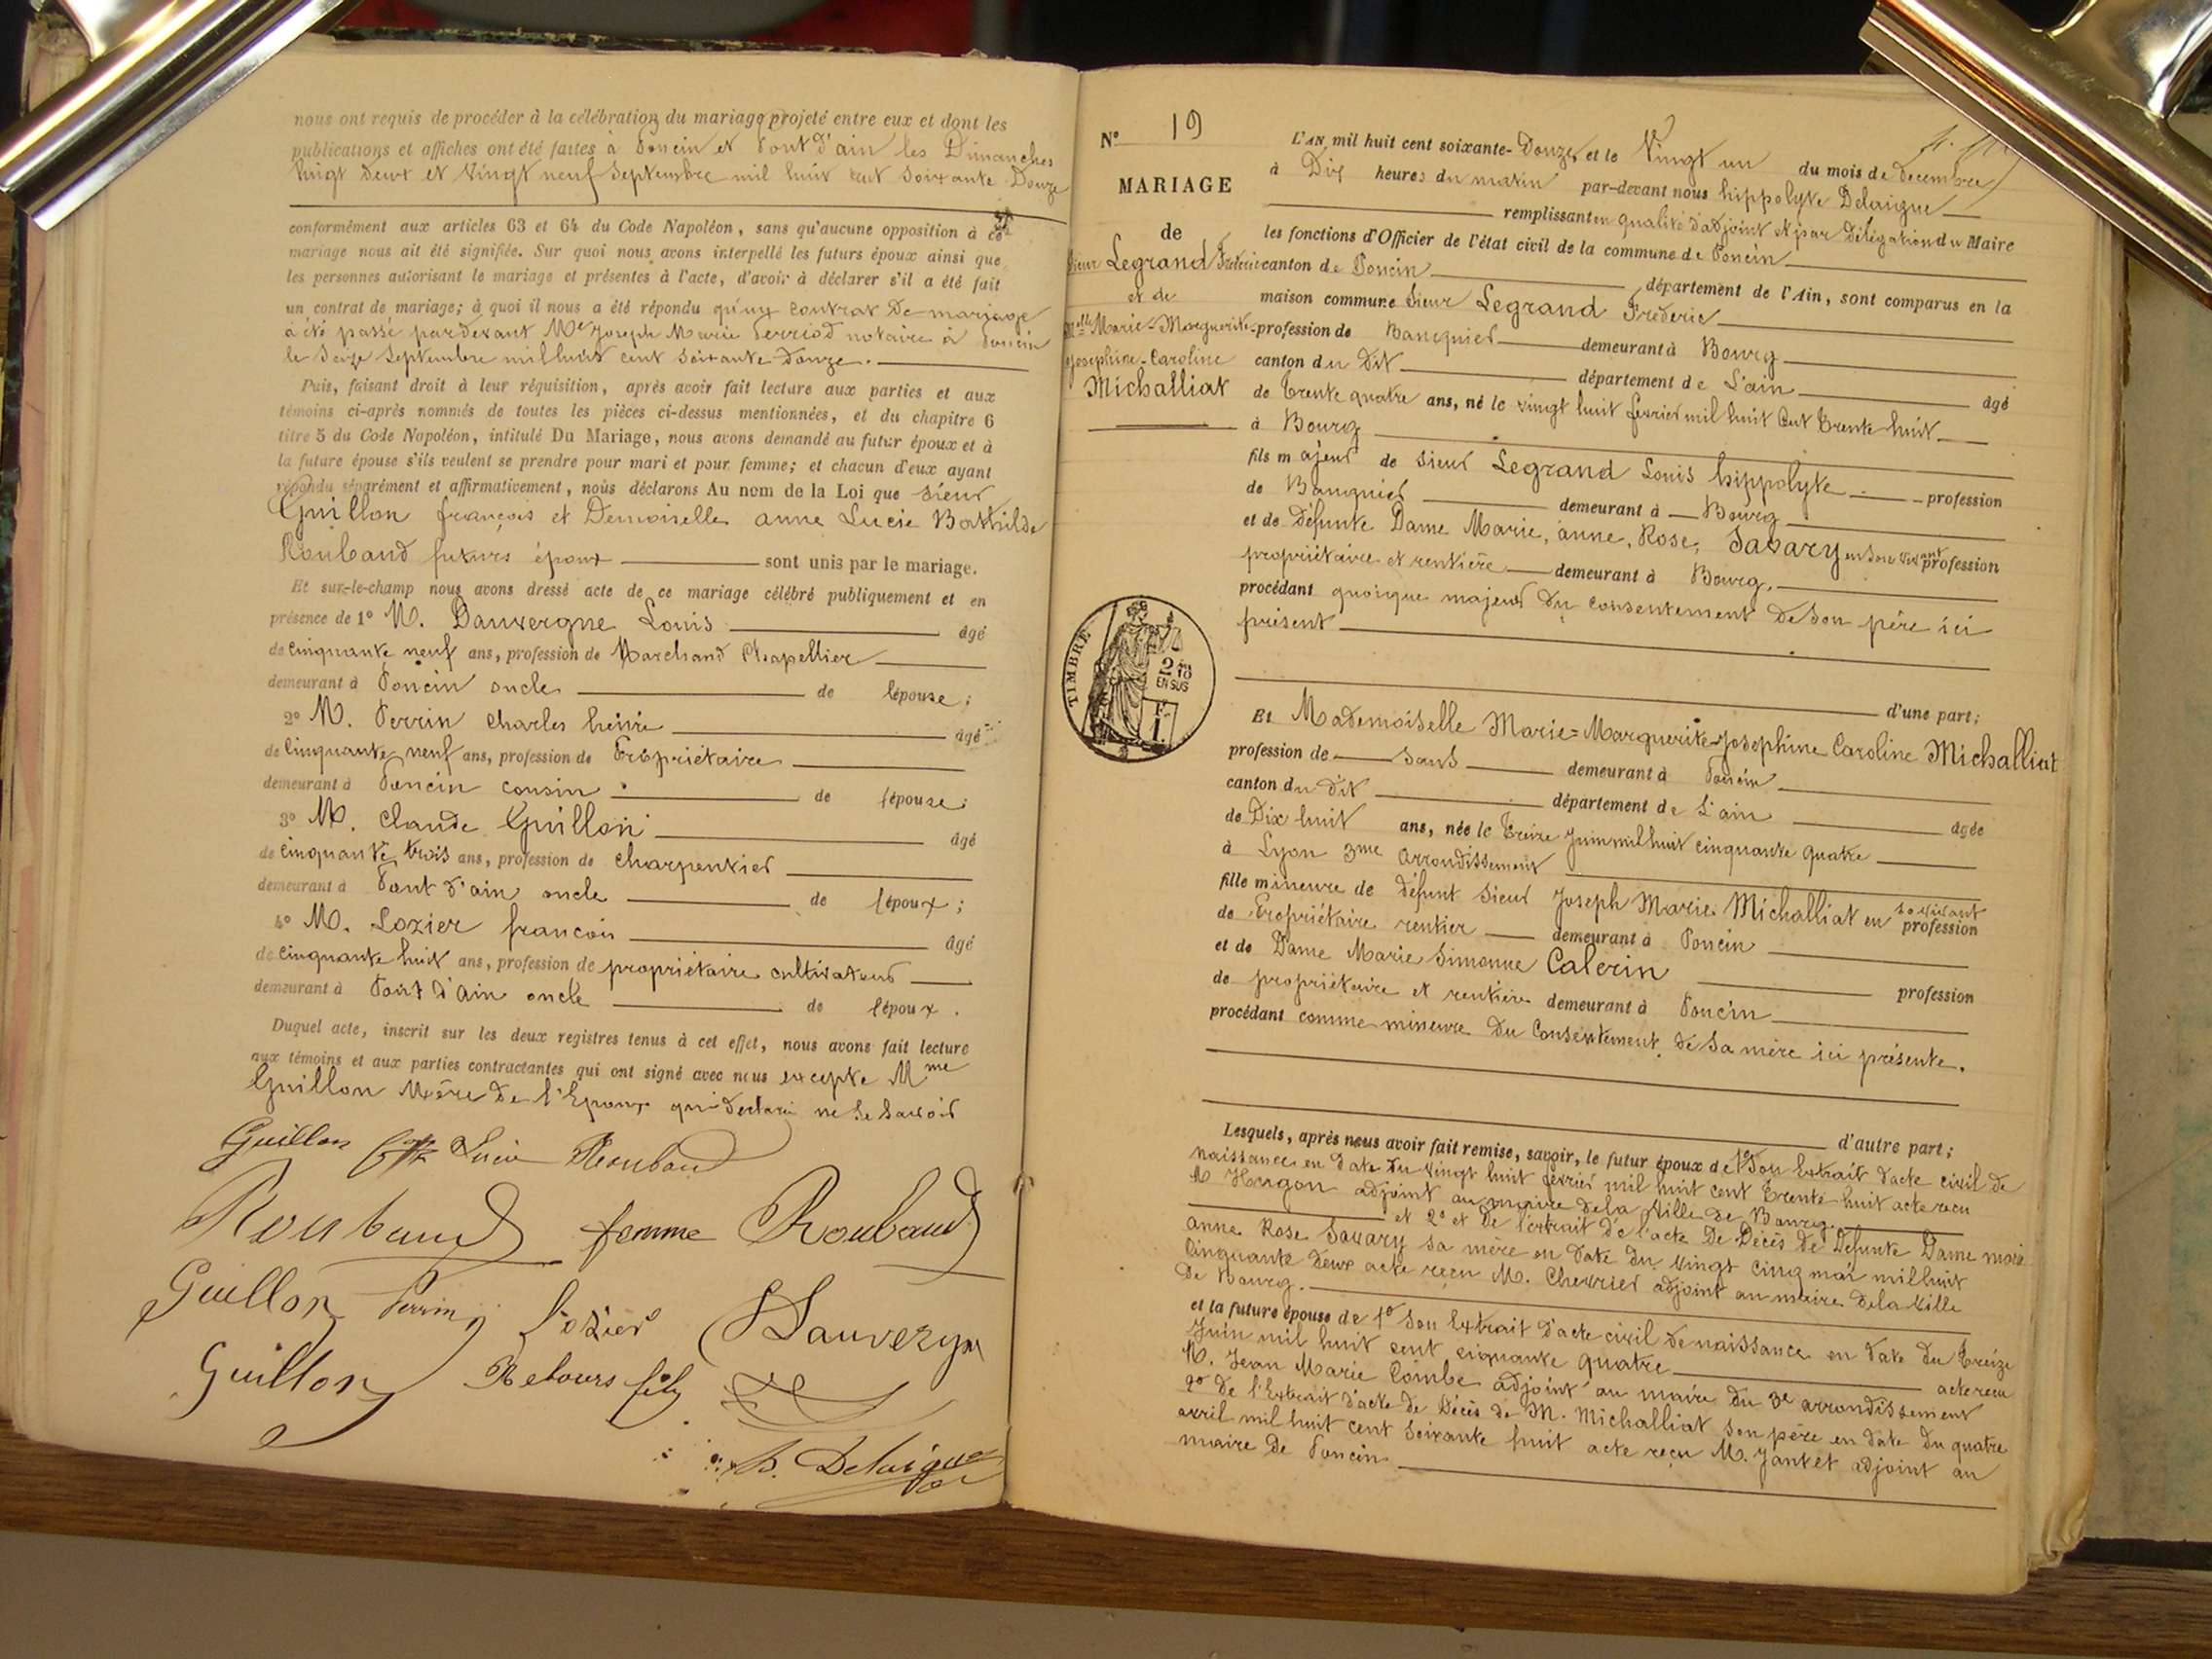 nous ont requis de procéder à la célébration du mariage projeté entre eux et dont les
publications et affiches ont été faites à Poncin et Pont d'ain les Dimanches
Vingt deux et Vingt neuf Septembre mil huit cent soixante Douze
conformément aux articles 63 et 64 du Code Napoléon, sans qu'aucune opposition à ce
mariage nous ait été signifiée. Sur quoi nous avons interpellé les futurs époux ainsi que
les personnes autorisant le mariage et présentes à l'acte, d'avoir à déclarer s'il a été fait
un contrat de mariage; à quoi il nous a été répondu qu'un contrat de mariage
a été passé pardevant Me Joseph Marie Perriod notaire à Poncin
le Seize Septembre mil huit cent soixante-douze.
Puis, faisant droit à leur réquisition, après avoir fait lecture aux parties et aux
témoins ci-après nommés de toutes les pièces ci-dessus mentionnées, et du chapitre 6
titre 5 du Code Napoléon, intitulé Du Mariage, nous avons demandé au futur époux et à
la future épouse s'ils veulent se prendre pour mari et pour femme; et chacun d'eux ayant
répondu séparément et affirmativement, nous déclarons Au nom de la Loi que Sieur
Guillon françois et Demoiselle anne Lucie Bathilde
Roubaud futurs époux sont unis par le mariage.
Et sur-le-champ nous avons dressé acte de ce mariage célébré publiquement et en
présence de 1° M. Dauvergne Louis âgé
de Cinquante neuf ans, profession de Marchand Chapellier
demeurant à Poncin oncle de l'épouse;
2° M. Perrin Charles henrie âgé
de Cinquante neuf ans, profession de Propriétaire
demeurant à Poncin cousin de l'épouse;
3° M. Claude Guillon âgé
de Cinquante trois ans, profession de Charpentier
demeurant à Pont d'ain oncle de l'époux;
4° M. Lozier francois âgé
de Cinquante huit ans, profession de propriétaire cultivateur
demeurant à Pont d'Ain oncle de l'époux.
Duquel acte, inscrit sur les deux registres tenus à cet effet, nous avons fait lecture
aux témoins et aux parties contractantes qui ont signé avec nous excepté Mme
Guillon Mère de l'Epoux qui déclaré ne le Savoir
Guillon Lucie Roubaud
Roubaud femme Roubaud
Guillon Perrin Lozier Dauvergne
Guillon fils
h. Delaigue
N° 19
MARIAGE
de
Sieur Legrand Fréderic
et de
Melle Marie-Marguerite-
Josephine-Caroline
Michalliat
TIMBRE
2 10
EN SUS
1
L'AN mil huit cent soixante-Douze et le Vingt un du mois de Décembre
à Dix heures du matin par-devant nous hippolyte Delaigue
remplissant en qualité d'adjoint et par délégation du Maire
les fonctions d'Officier de l'état civil de la commune de Poncin
canton de Poncin département de l'Ain, sont comparus en la
maison commune Sieur Legrand Fréderic
profession de Banquier demeurant à Bourg
canton du dit département de L'ain âgé
de trente quatre ans, né le vingt huit fevrier mil huit Cent trente huit
à Bourg
fils majeur de Sieur Legrand Louis hippolyte profession
de Banquier demeurant à Bourg
et de défunte Dame Marie, anne, Rose, Savary en son vivant profession
propriétaire et rentière demeurant à Bourg.
procédant quoique majeur du consentement de son père ici
présent
d'une part;
Et Mademoiselle Marie-Marguerite-Josephine Caroline Michalliat
profession de Sans demeurant à Poncin
canton du dit département de L'ain âgée
de Dix huit ans, née le treize Juin mil huit cinquante quatre
à Lyon 3me arrondissement
fille mineure de défunt Sieur Joseph Marie Michalliat en so vivant profession
de Propriétaire rentier demeurant à Poncin
et de Dame Marie Simonne Calerin profession
de propriétaire et rentière demeurant à Poncin
procédant comme mineure du Consentement de sa mère ici présente.
d'autre part;
Lesquels, après nous avoir fait remise, savoir, le futur époux de 1° Son Extrait d'acte civil de
naissance en date du vingt huit fevrier mil huit cent trente-huit acte reçu
M Hugon adjoint au maire de la Ville de Bourg.
et 2° et de l'extrait de l'acte de Décès de Défunte Dame marie
anne Rose Savary sa mère en date du vingt Cinq mai mil huit
Cinquante deux acte reçu M. Chevrier adjoint au maire de la Ville
de Bourg.
et la future épouse de 1° Son Extrait d'acte civil de naissance en date du treize
Juin mil huit cent cinquante quatre acte reçu
M. Jean Marie Combe adjoint au maire du 3e arrondissement
2° de l'Extrait d'acte de Décès de M. Michalliat son père en date du quatre
avril mil huit cent soixante huit acte reçu M. Jantet adjoint au
maire de Poncin